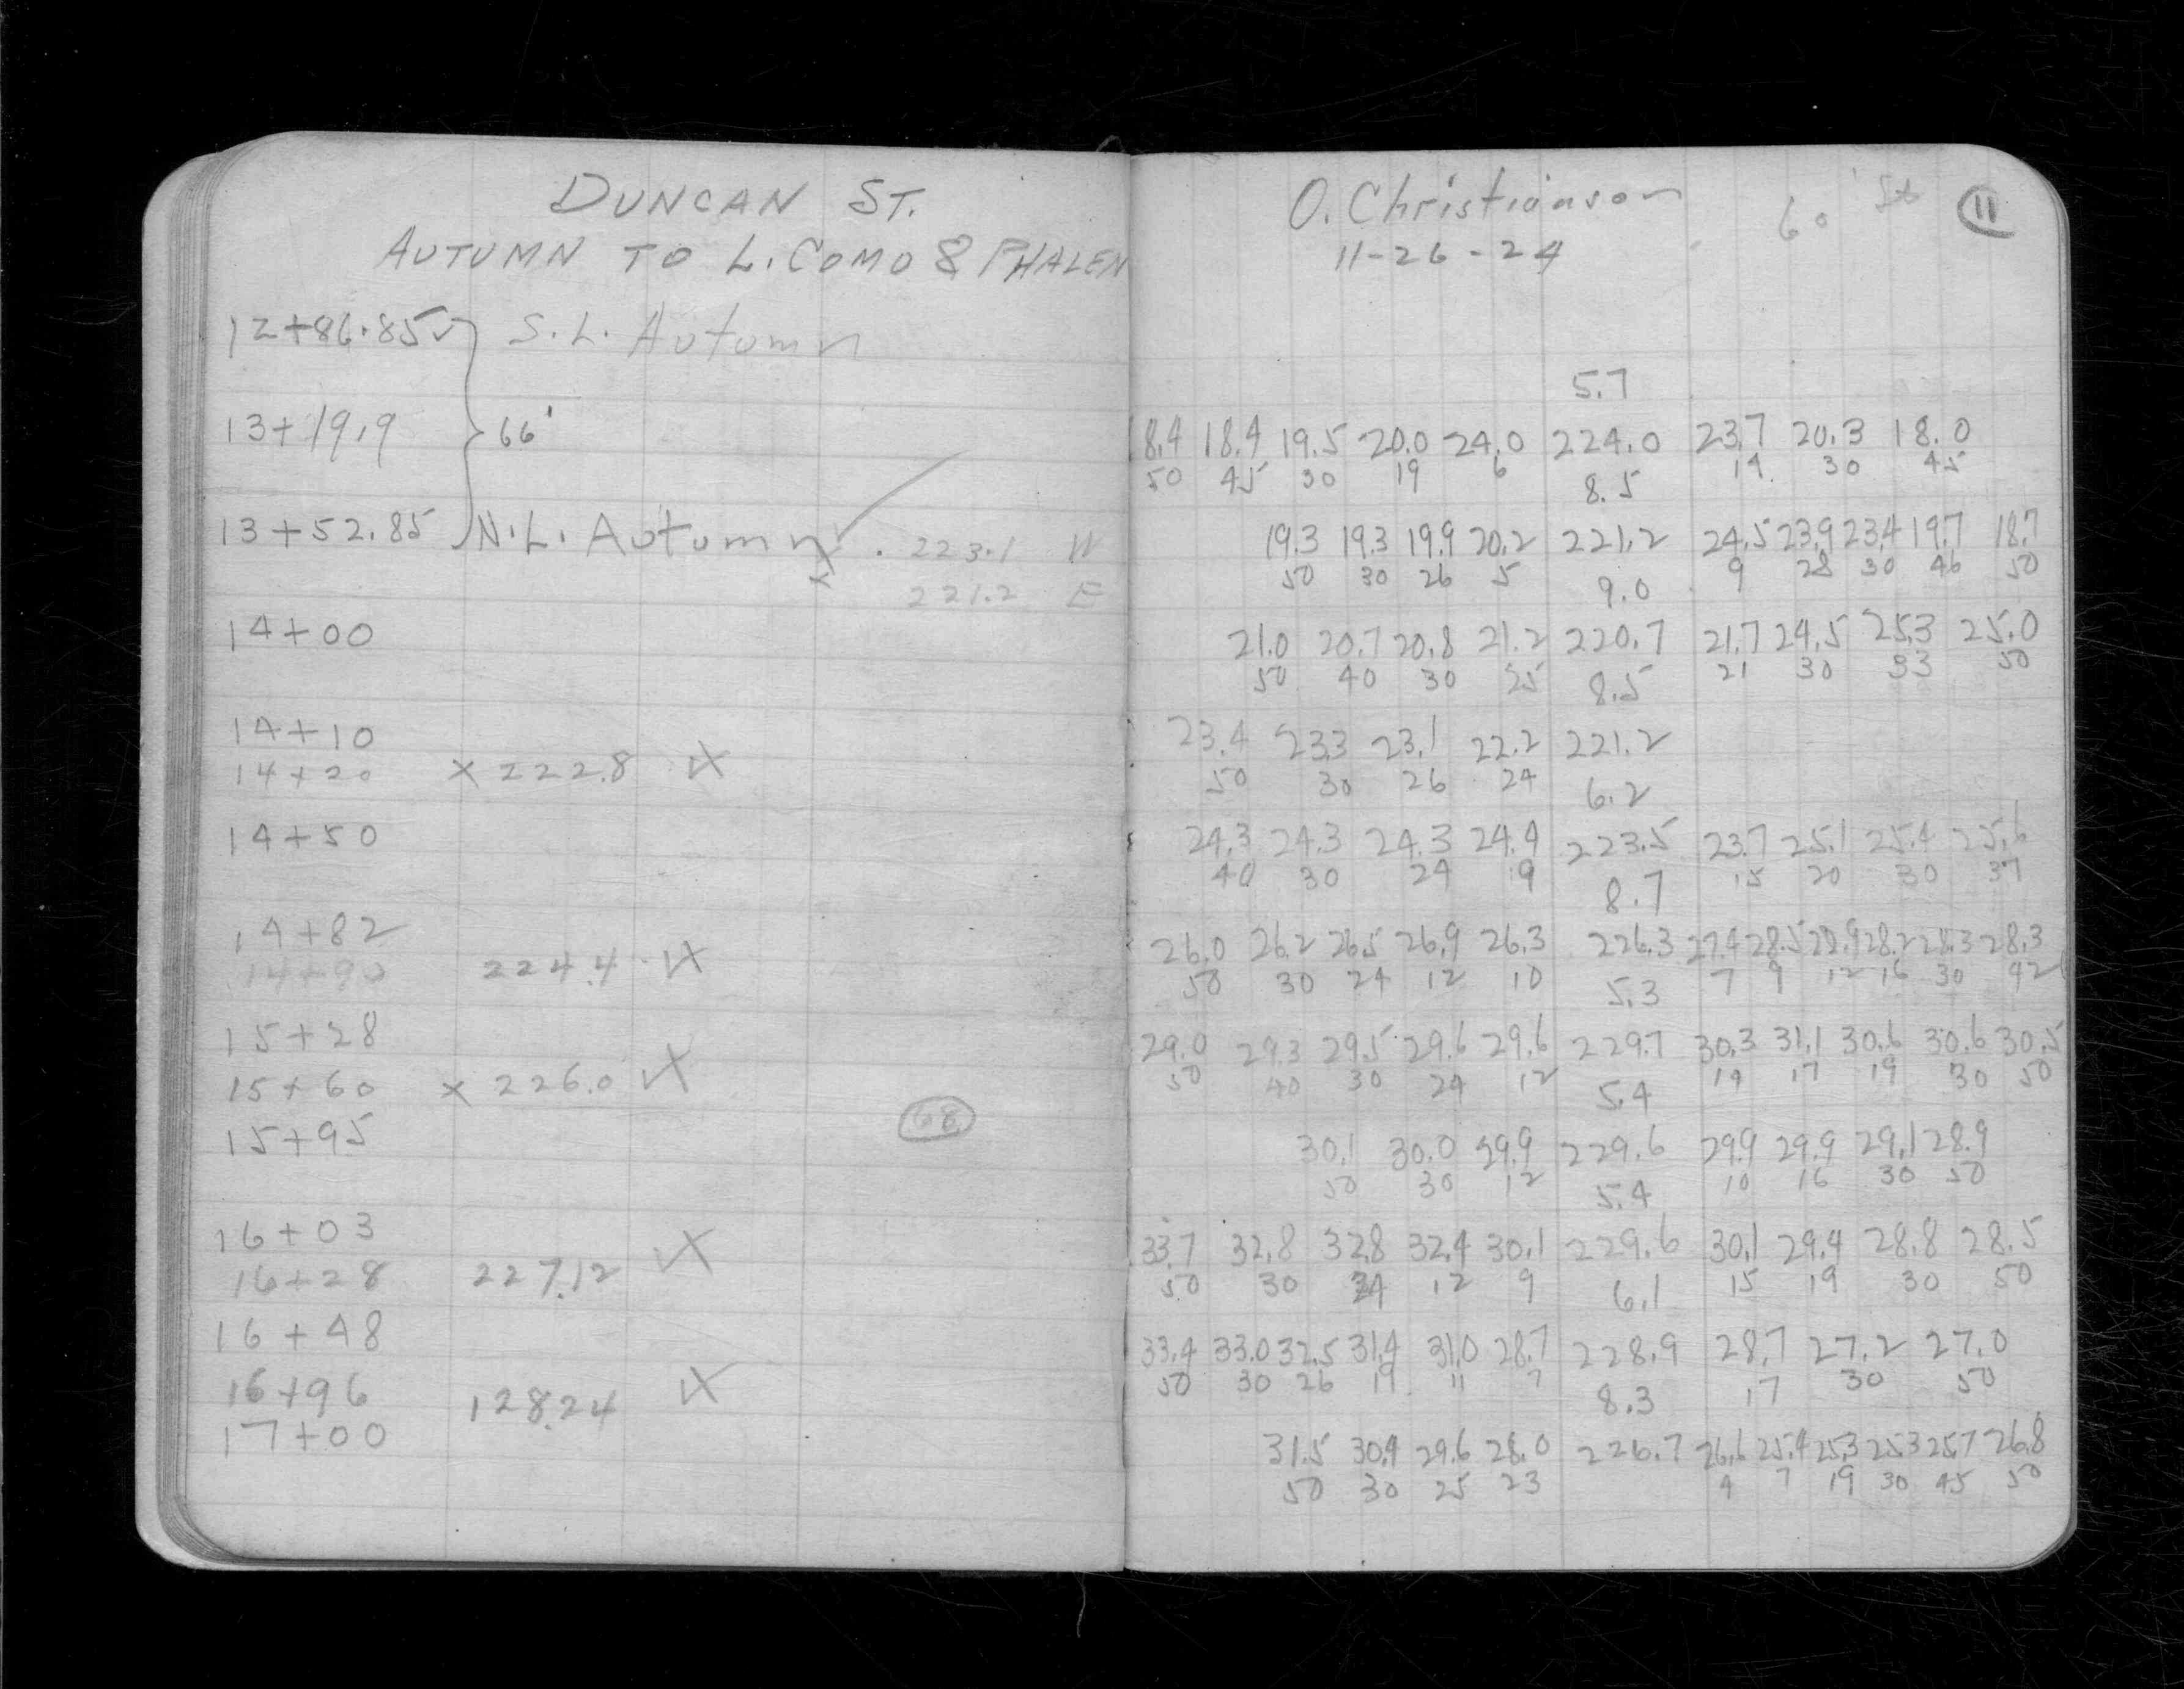 DUNCAN ST.
AUTUMN TO L. COMO & PHALEN
12+86.85 S.L. Autumn
13+19.9 66'
13+52.85 N.L. Autumn 223.1 W
221.2 E
14+00
14+10
14+20 x 222.8
14+50
14+82
14+90 224.4
15+28
15+60 x 226.0
68
15+95
16+03
16+28 227.12
16+48
16+96 128.24
17+00
O. Christianson 60' St 11
11-26-24
5.7
18.4 18.4 19.5 20.0 24.0 224.0 23.7 20.3 18.0
50 45 30 19 6 8.5 14 30 45
19.3 19.3 19.9 20.2 221.2 24.5 23.9 23.4 19.7 18.7
50 30 26 5 9.0 9 28 30 46 50
21.0 20.7 20.8 21.2 220.7 21.7 24.5 25.3 25.0
50 40 30 25 8.5 21 30 33 50
23.4 23.3 23.1 22.2 221.2
50 30 26 24 6.2
24.3 24.3 24.3 24.4 223.5 23.7 25.1 25.4 25.6
40 30 24 19 8.7 15 20 30 37
26.0 26.2 26.5 26.9 26.3 226.3 27.4 28.5 28.2 28.3 28.3
50 30 24 12 10 5.3 7 9 12 16 30 42
29.0 29.3 29.5 29.6 29.6 229.7 30.3 31.1 30.6 30.6 30.5
50 40 30 24 12 5.4 14 17 19 30 50
30.1 30.0 29.9 229.6 29.9 29.9 29.1 28.9
50 30 12 5.4 10 16 30 50
33.7 32.8 32.8 32.4 30.1 229.6 30.1 29.4 28.8 28.5
50 30 24 12 9 6.1 15 19 30 50
33.4 33.0 32.5 31.4 31.0 28.7 228.9 28.7 27.2 27.0
50 30 26 19 11 7 8.3 17 30 50
31.5 30.4 29.6 28.0 226.7 26.6 25.4 25.3 25.3 25.7 26.8
50 30 25 23 4 7 19 30 45 50